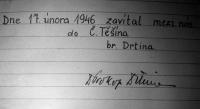 Dne 17. února 1946 zavítal mezi nás
do Č. Těšína
br. Drtina
Prokop Drtina